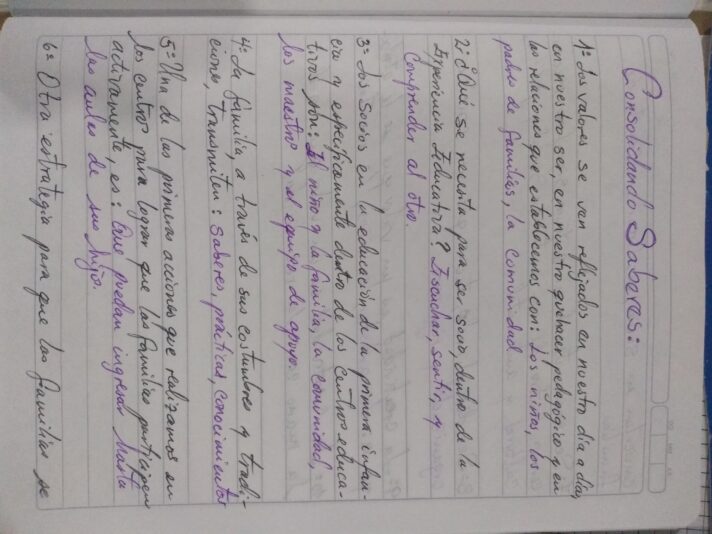 Consolidando Saberes:
1= Los valores se ven reflejados en nuestro día a día,
en nuestro ser, en nuestro quehacer pedagógico y en
las relaciones que establecemos con: Los niños, los
padres de familias, la comunidad
2: ¿Qué se necesita para ser socio, dentro de la
Experiencia Educativa? Escuchar, sentir, y
Comprender al otro.
3= Los Socios en la educación de la primera infan-
cia y específicamente dentro de los centros educa-
tivos son: El niño y la familia, la comunidad,
los maestro y el equipo de apoyo.
4= La familia, a través de sus costumbres y tradi-
ciones, transmiten: Saberes, prácticas, conocimientos
5= Una de las primeras acciones que realizamos en
los centros para lograr que las familias participen
activamente, es: Que puedan ingresar hasta
las aulas de sus hijo.
6= Otra estrategia para que las familias se